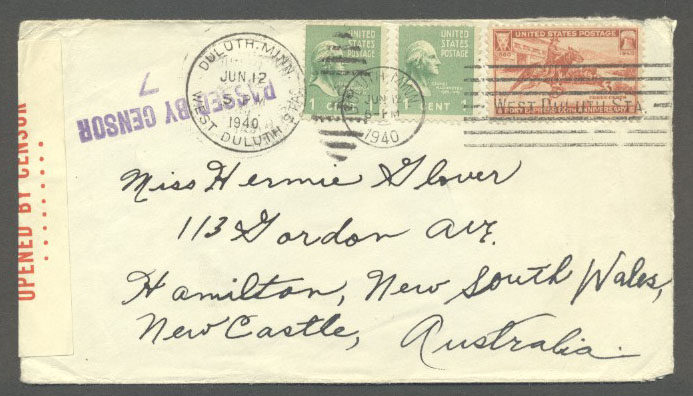 DULUTH, MINN.
JUN 12
5 PM
1940
WEST DULUTH STA.
UNITED STATES POSTAGE
1 CENT
UNITED STATES POSTAGE
CENT
DULUTH, MINN.
JUN 12
PM
1940
UNITED STATES POSTAGE
WEST DULUTH STA.
PASSED BY CENSOR
7
OPENED BY CENSOR
Miss Hermie Glover
113 Gordon Ave.
Hamilton, New South Wales,
New Castle, Australia.